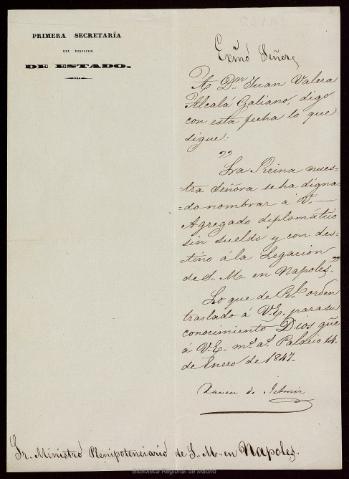 PRIMERA SECRETARÍA
DEL DESPACHO
DE ESTADO.
Exmõ Señor,
A Dⁿ Juan Valera
Alcalá Galiano, digo
con esta fecha lo que
sigue:
"La Reina nues-
tra Señora se ha digna-
=do nombrar á V.
Agregado diplomático
sin sueldo y con des-
tino á la Legacion
de S. M. en Napoles."
Lo que de Rˡ orden
traslado á V.E. para su
conocimiento. Dios gũe
á V.E. mˢ aˢ. Palacio 14
de Enero de 1847.
de Isturiz
Sr. Ministro Plenipotenciario de S. M. en Napoles.
Biblioteca Regional de Madrid